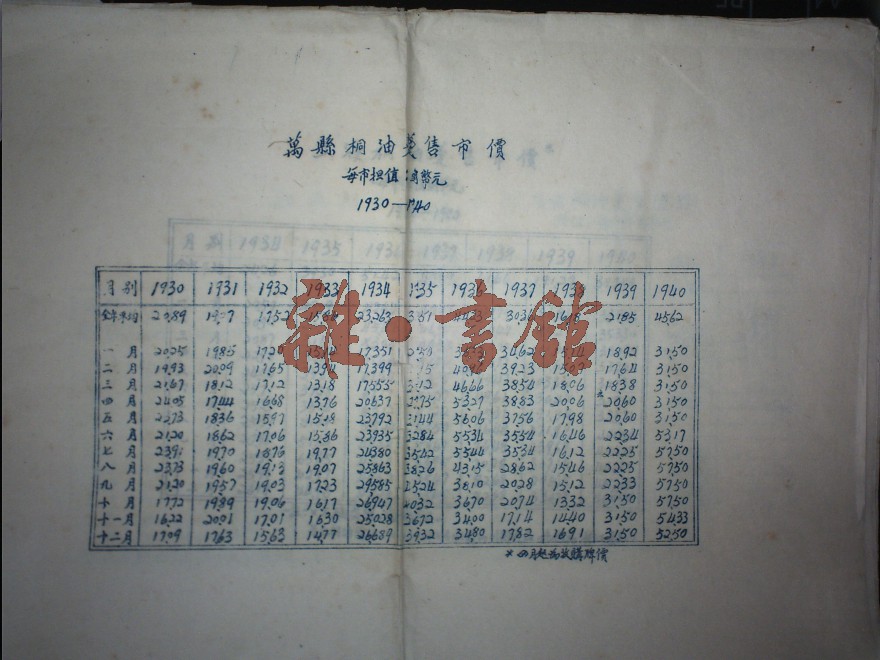 萬縣桐油躉售市價
每市担值:國幣元
1930—1940
月别 1930 1931 1932 1933 1934 1935 1936 1937 1938 1939 1940
全年平均 20.89 17.52 23.263 21.85 45.62
一月 20.25 19.85 17.351 34.62 18.92 31.50
二月 19.93 20.09 17.65 17.399 39.23 17.64 31.50
三月 21.67 18.12 17.12 13.18 17.555 46.66 38.54 18.06 18.38 31.50
四月 24.05 17.44 16.68 13.76 20.637 53.27 38.83 20.06 20.60 31.50
五月 22.73 18.36 15.97 23.792 31.44 56.06 37.56 17.98 20.60 31.50
六月 21.20 18.62 17.06 15.86 23.935 32.84 55.34 35.54 16.46 22.34 53.17
七月 23.91 19.70 18.73 19.77 24.380 35.42 55.44 35.34 16.12 22.25 57.50
八月 23.73 19.60 19.13 19.07 25.863 38.26 43.15 28.62 15.46 22.25 57.50
九月 21.20 19.57 19.03 17.23 29.585 38.10 20.28 15.12 22.33 57.50
十月 17.72 19.89 19.06 16.17 26.947 40.32 36.70 20.74 13.32 31.50 57.50
十一月 16.22 20.01 17.01 16.30 25.028 36.72 34.00 17.14 14.40 31.50 54.33
十二月 17.09 17.63 15.63 14.77 26.689 39.32 34.80 17.82 16.91 31.50 52.50
*四月起為收購牌價
雜·書館